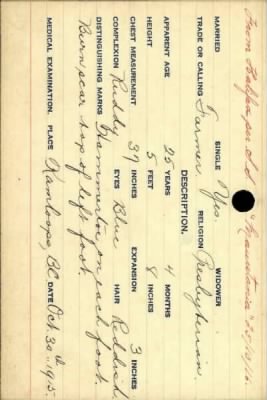 From Halifax per S.S. "Mauretania" 25/10/16
MARRIED SINGLE Yes. WIDOWER
TRADE OR CALLING Farmer RELIGION Presbyterian.
DESCRIPTION.
APPARENT AGE 25 YEARS 4 MONTHS
HEIGHT 5 FEET 8 INCHES
CHEST MEASUREMENT 39 INCHES EXPANSION 3 INCHES
COMPLEXION Ruddy EYES Blue HAIR Reddish
DISTINGUISHING MARKS Hammertoe on each foot.
Burn scar top of left foot.
MEDICAL EXAMINATION. PLACE Kamloops, BC DATE Oct. 30th, 1915.